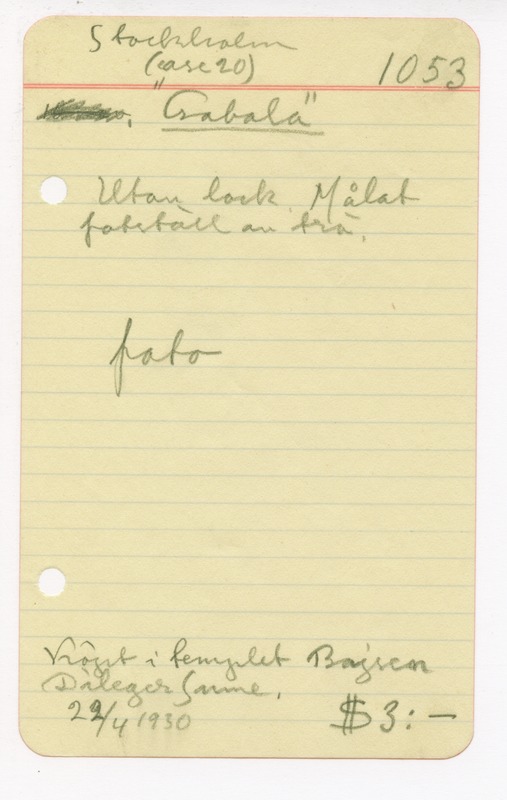 Stockholm
(case 20)
1053
"Gabala"
Utan lock. Målat
fotställ av trä.
foto
Köpt i templet Bajsen
Dälegersume,
22/4 1930
$3:-